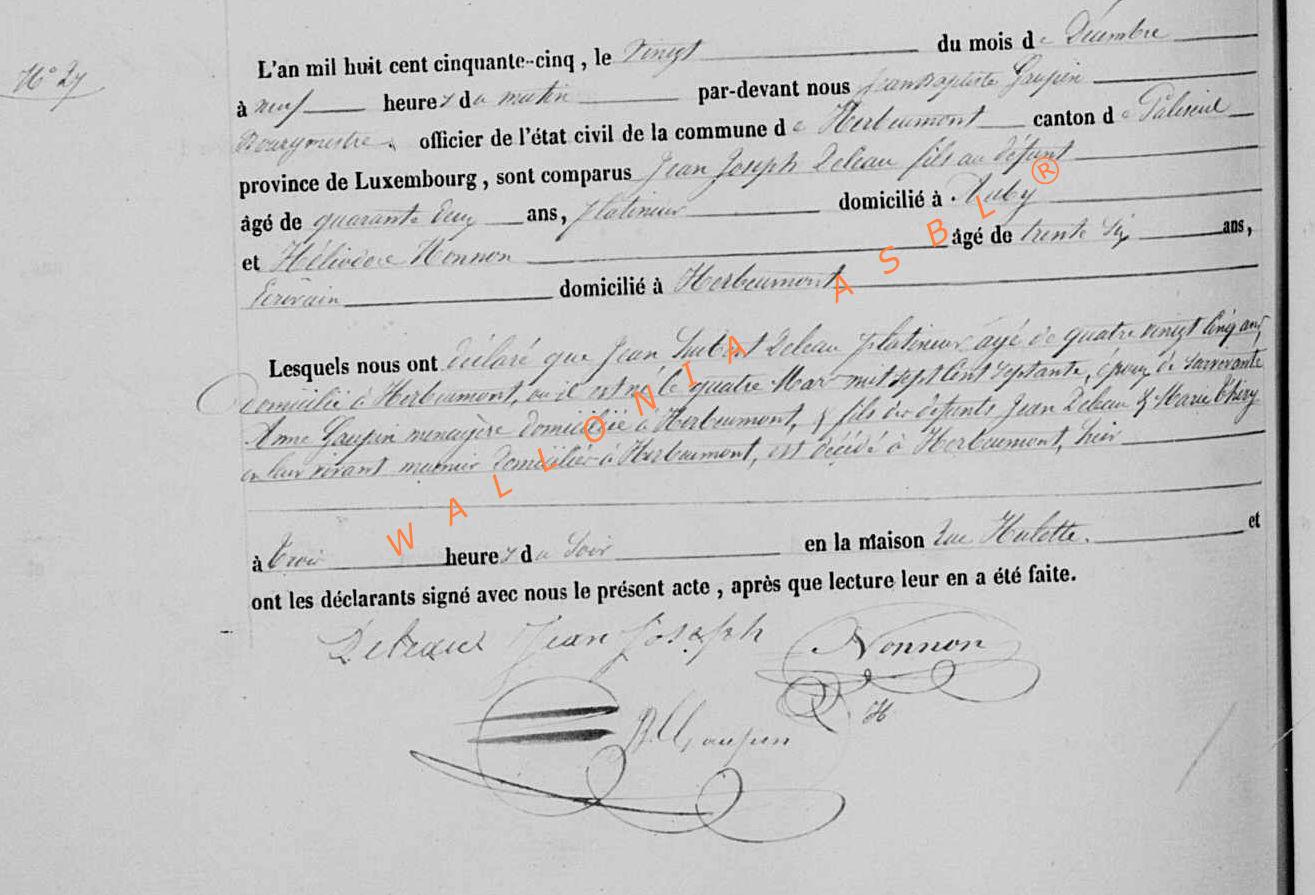 N° 27
L'an mil huit cent cinquante-cinq, le vingt du mois de Décembre
à neuf heures du matin par-devant nous Jean Baptiste Gaupin
Bourgmestre, officier de l'état civil de la commune de Herbeumont canton de Paliseul
province de Luxembourg, sont comparus Jean Joseph Deleau fils au défunt
âgé de quarante deux ans, platineur domicilié à Auby
et Héliodore Nonnon âgé de trente six ans,
Ecrivain domicilié à Herbeumont
Lesquels nous ont déclaré que Jean Hubert Deleau platineur âgé de quatre vingt cinq ans,
domicilié à Herbeumont, où il est né le quatre Mars mil sept cent septante, époux de survivante
Anne Gaupin menagère domiciliée à Herbeumont, & fils des défunts Jean Deleau & Marie Théry
en leur vivant domiciliés à Herbeumont, est décédé à Herbeumont, hier
à trois heures du soir en la maison rue Hulette. et
ont les déclarants signé avec nous le présent acte, après que lecture leur en a été faite.
Jean Joseph Nonnon
H
Gaupin
WALLONIA ASBL ®